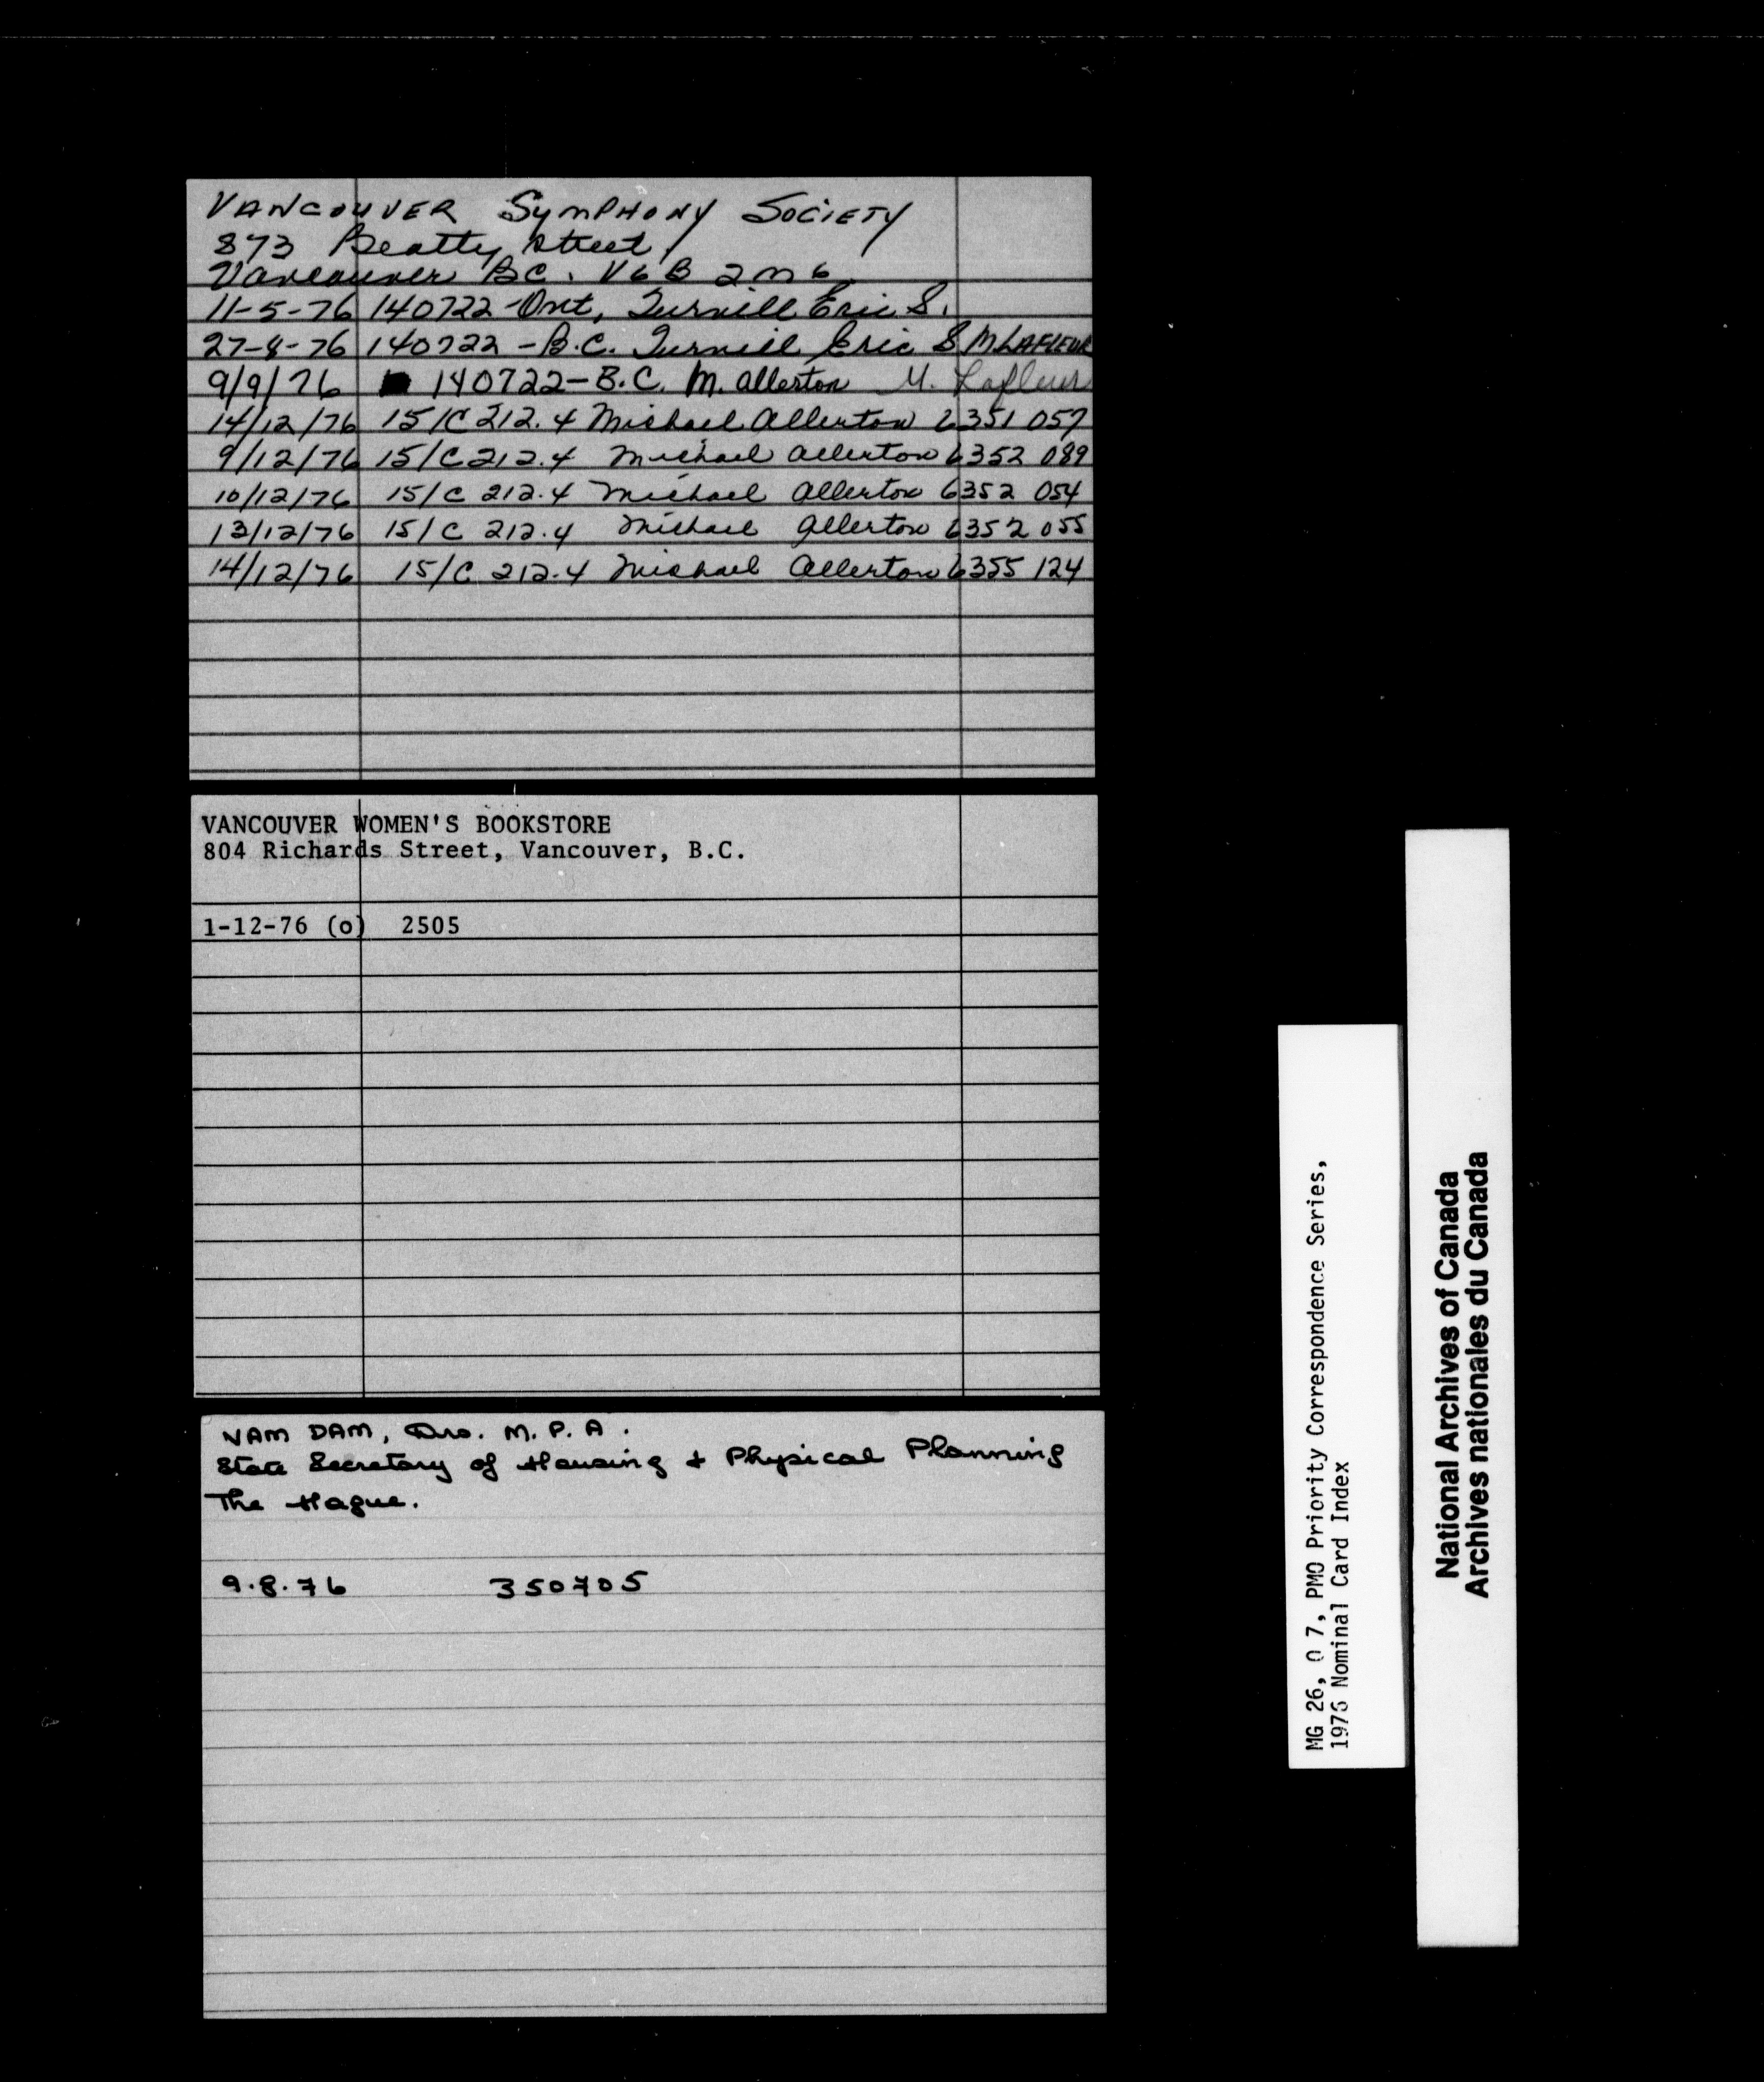 VANCOUVER SYMPHONY SOCIETY
873 Beatty street,
Vancouver BC. V6B 2M6
11-5-76 140722-Ont, Turvill Eric S.
27-8-76 140722-B.C. Turvill Eric S M. LAFLEUR
9/9/76 140722-B.C. M. Allerton M. Lafleur
14/12/76 15/C 212.4 Michael Allerton 6351 057
9/12/76 15/C 212.4 Michael Allerton 6352 089
10/12/76 15/C 212.4 Michael Allerton 6352 054
13/12/76 15/C 212.4 Michael Allerton 6352 055
14/12/76 15/C 212.4 Michael Allerton 6355 124
VANCOUVER WOMEN'S BOOKSTORE
804 Richards Street, Vancouver, B.C.
1-12-76 (o) 2505
VAM DAM, Drs. M.P.A.
State Secretary of Housing + Physical Planning
The Hague.
9.8.76 350705
MG 26, O 7, PMO Priority Correspondence Series,
1976 Nominal Card Index
National Archives of Canada
Archives nationales du Canada